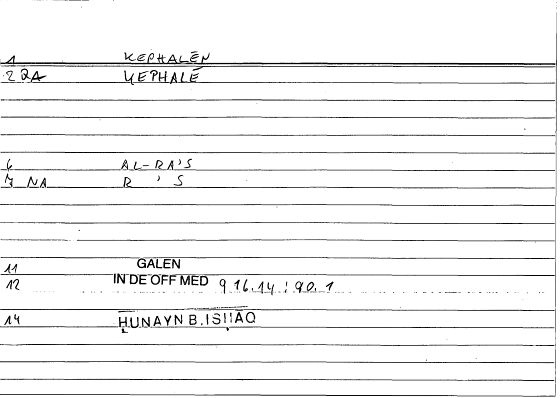 1 KEPHALĒN
2 QA KEPHALĒ
6 AL-RA'S
7 NA R ' S
11 GALEN
12 IN DE OFF MED 9 16.14 : 90.1
14 ḤUNAYN B. ISḤĀQ